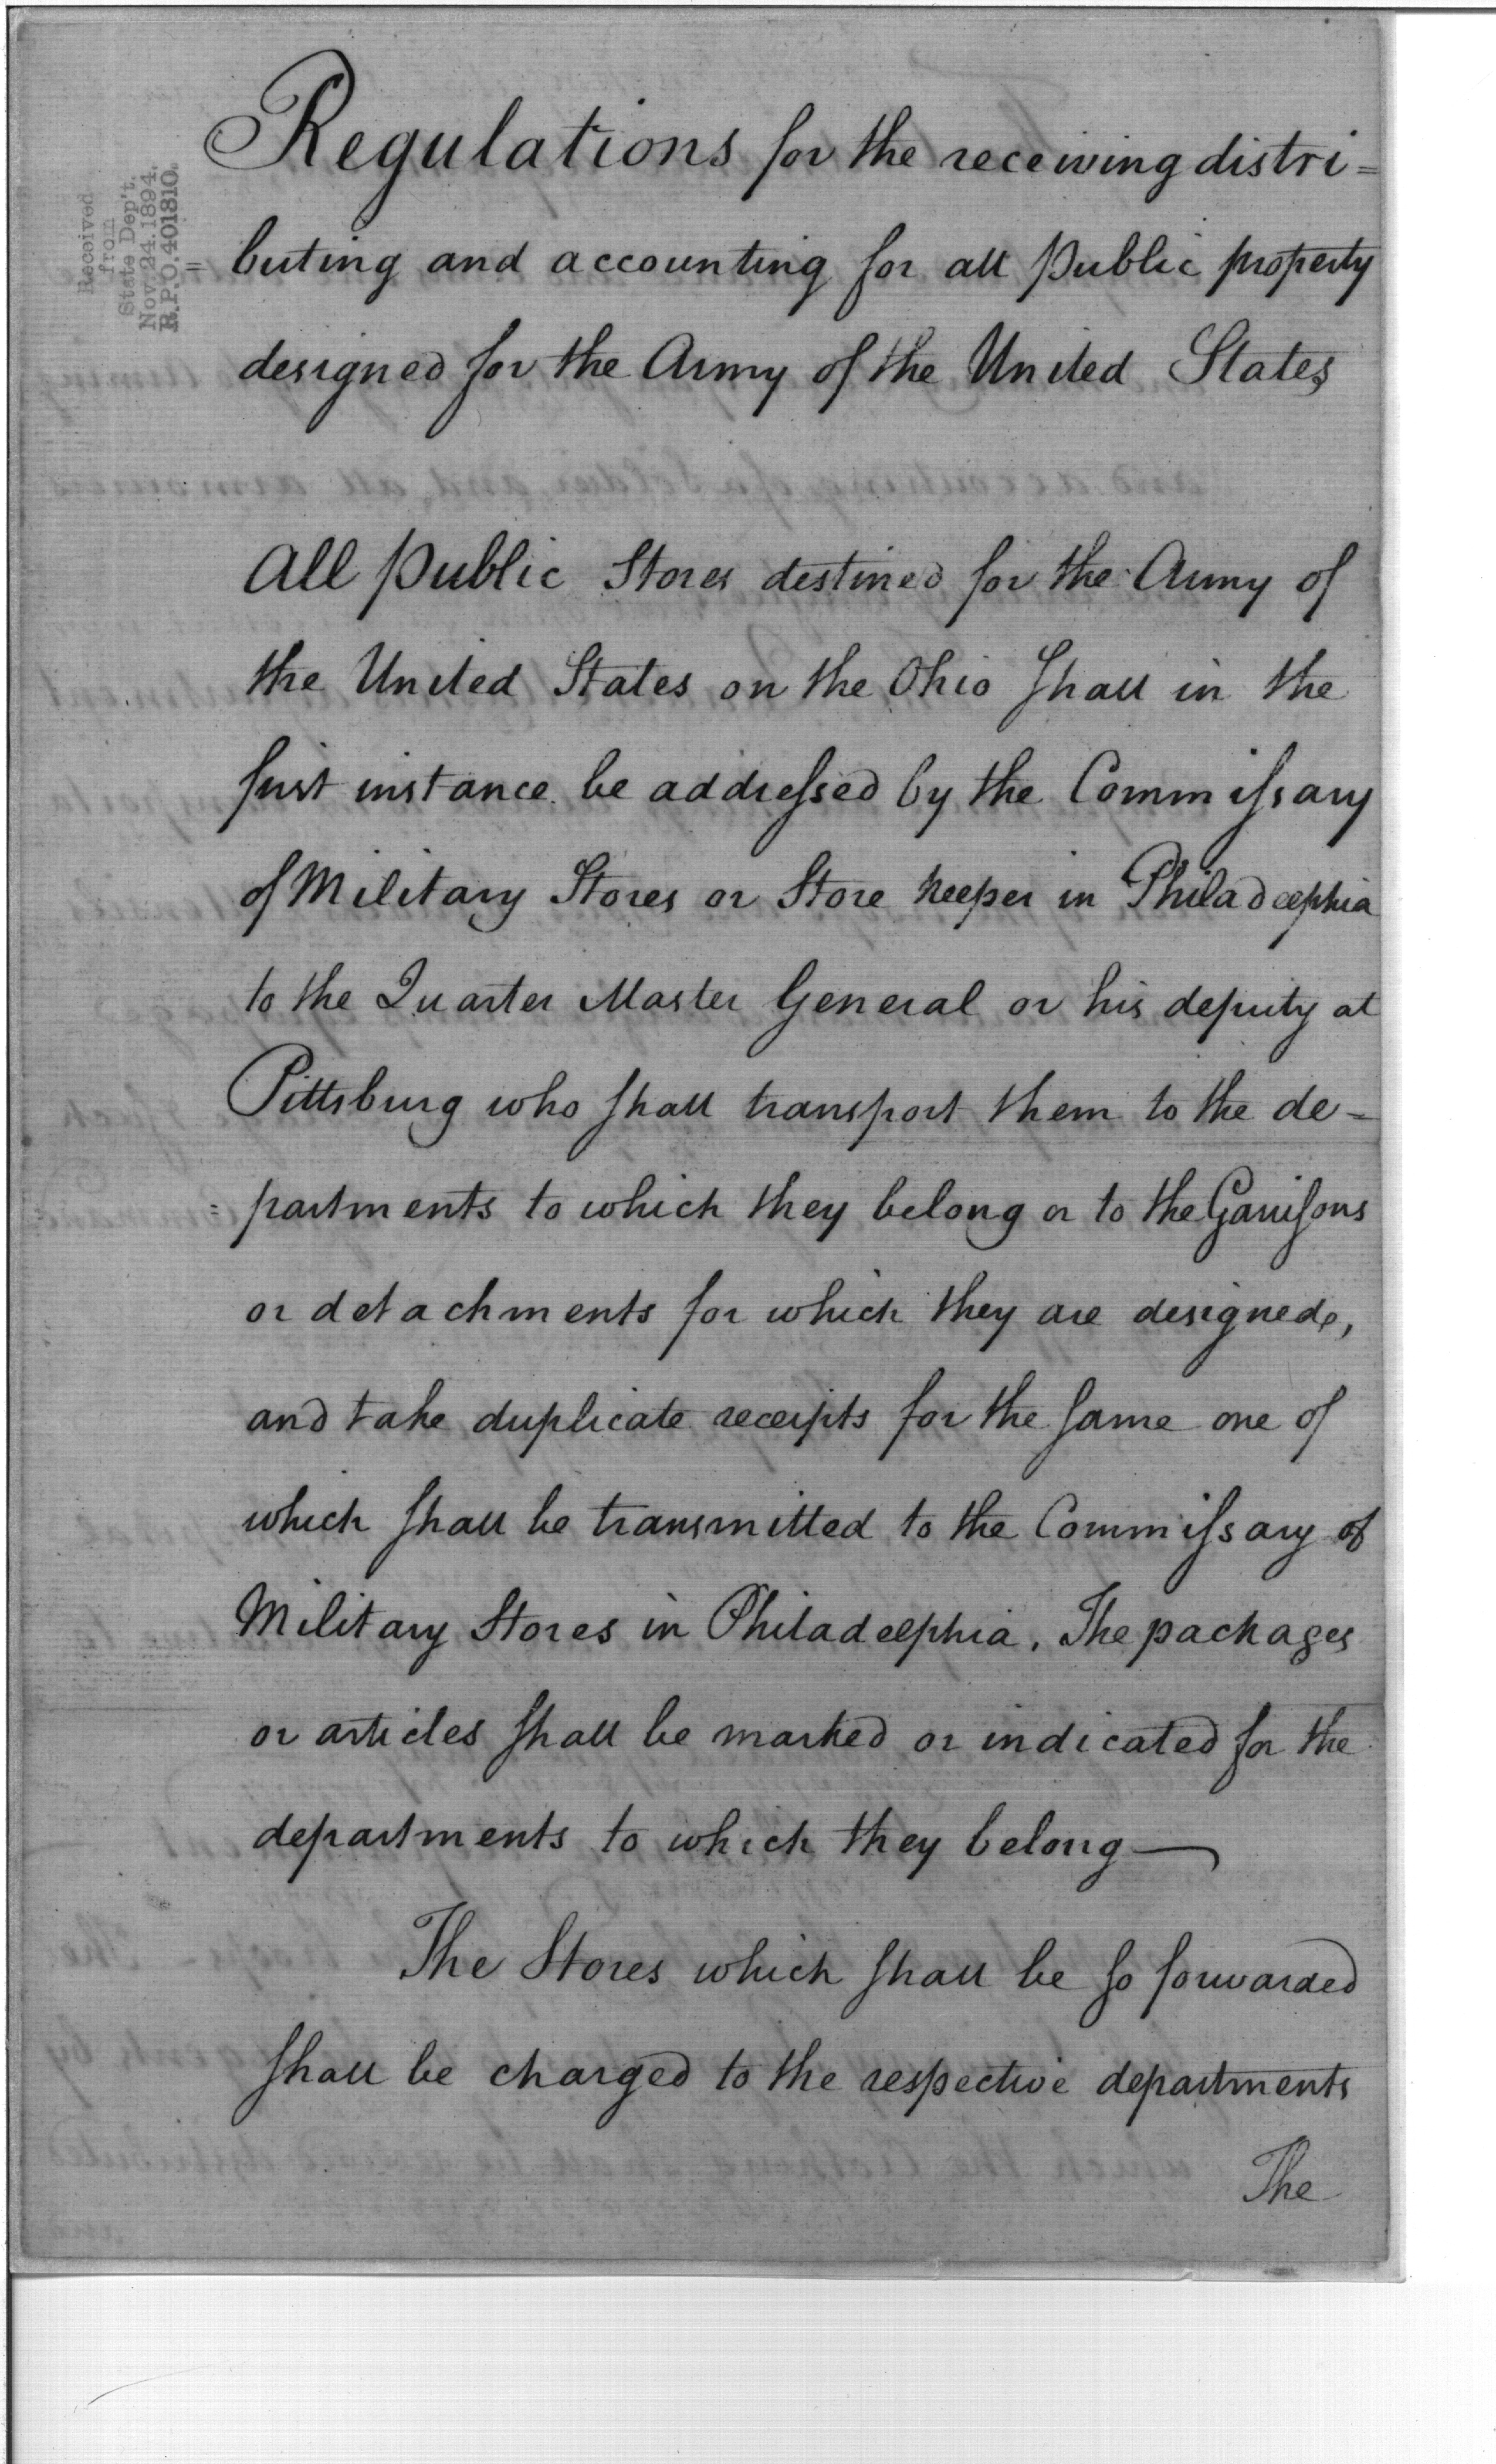 Received
from
State Dep't.
Nov. 24. 1894.
R.P.O. 401810.
Regulations for the receiving distri=
= buting and accounting for all Public property
designed for the Army of the United States
All Public Stores destined for the Army of
the United States on the Ohio shall in the
first instance be addressed by the Commissary
of Military Stores or Store keeper in Philadelphia
to the Quarter Master General or his deputy at
Pittsburg who shall transport them to the de=
= partments to which they belong or to the Garrisons
or detachments for which they are designed,
and take duplicate receipts for the same one of
which shall be transmitted to the Commissary of
Military Stores in Philadelphia. The packages
or articles shall be marked or indicated for the
departments to which they belong—
The Stores which shall be so forwarded
shall be charged to the respective departments
The